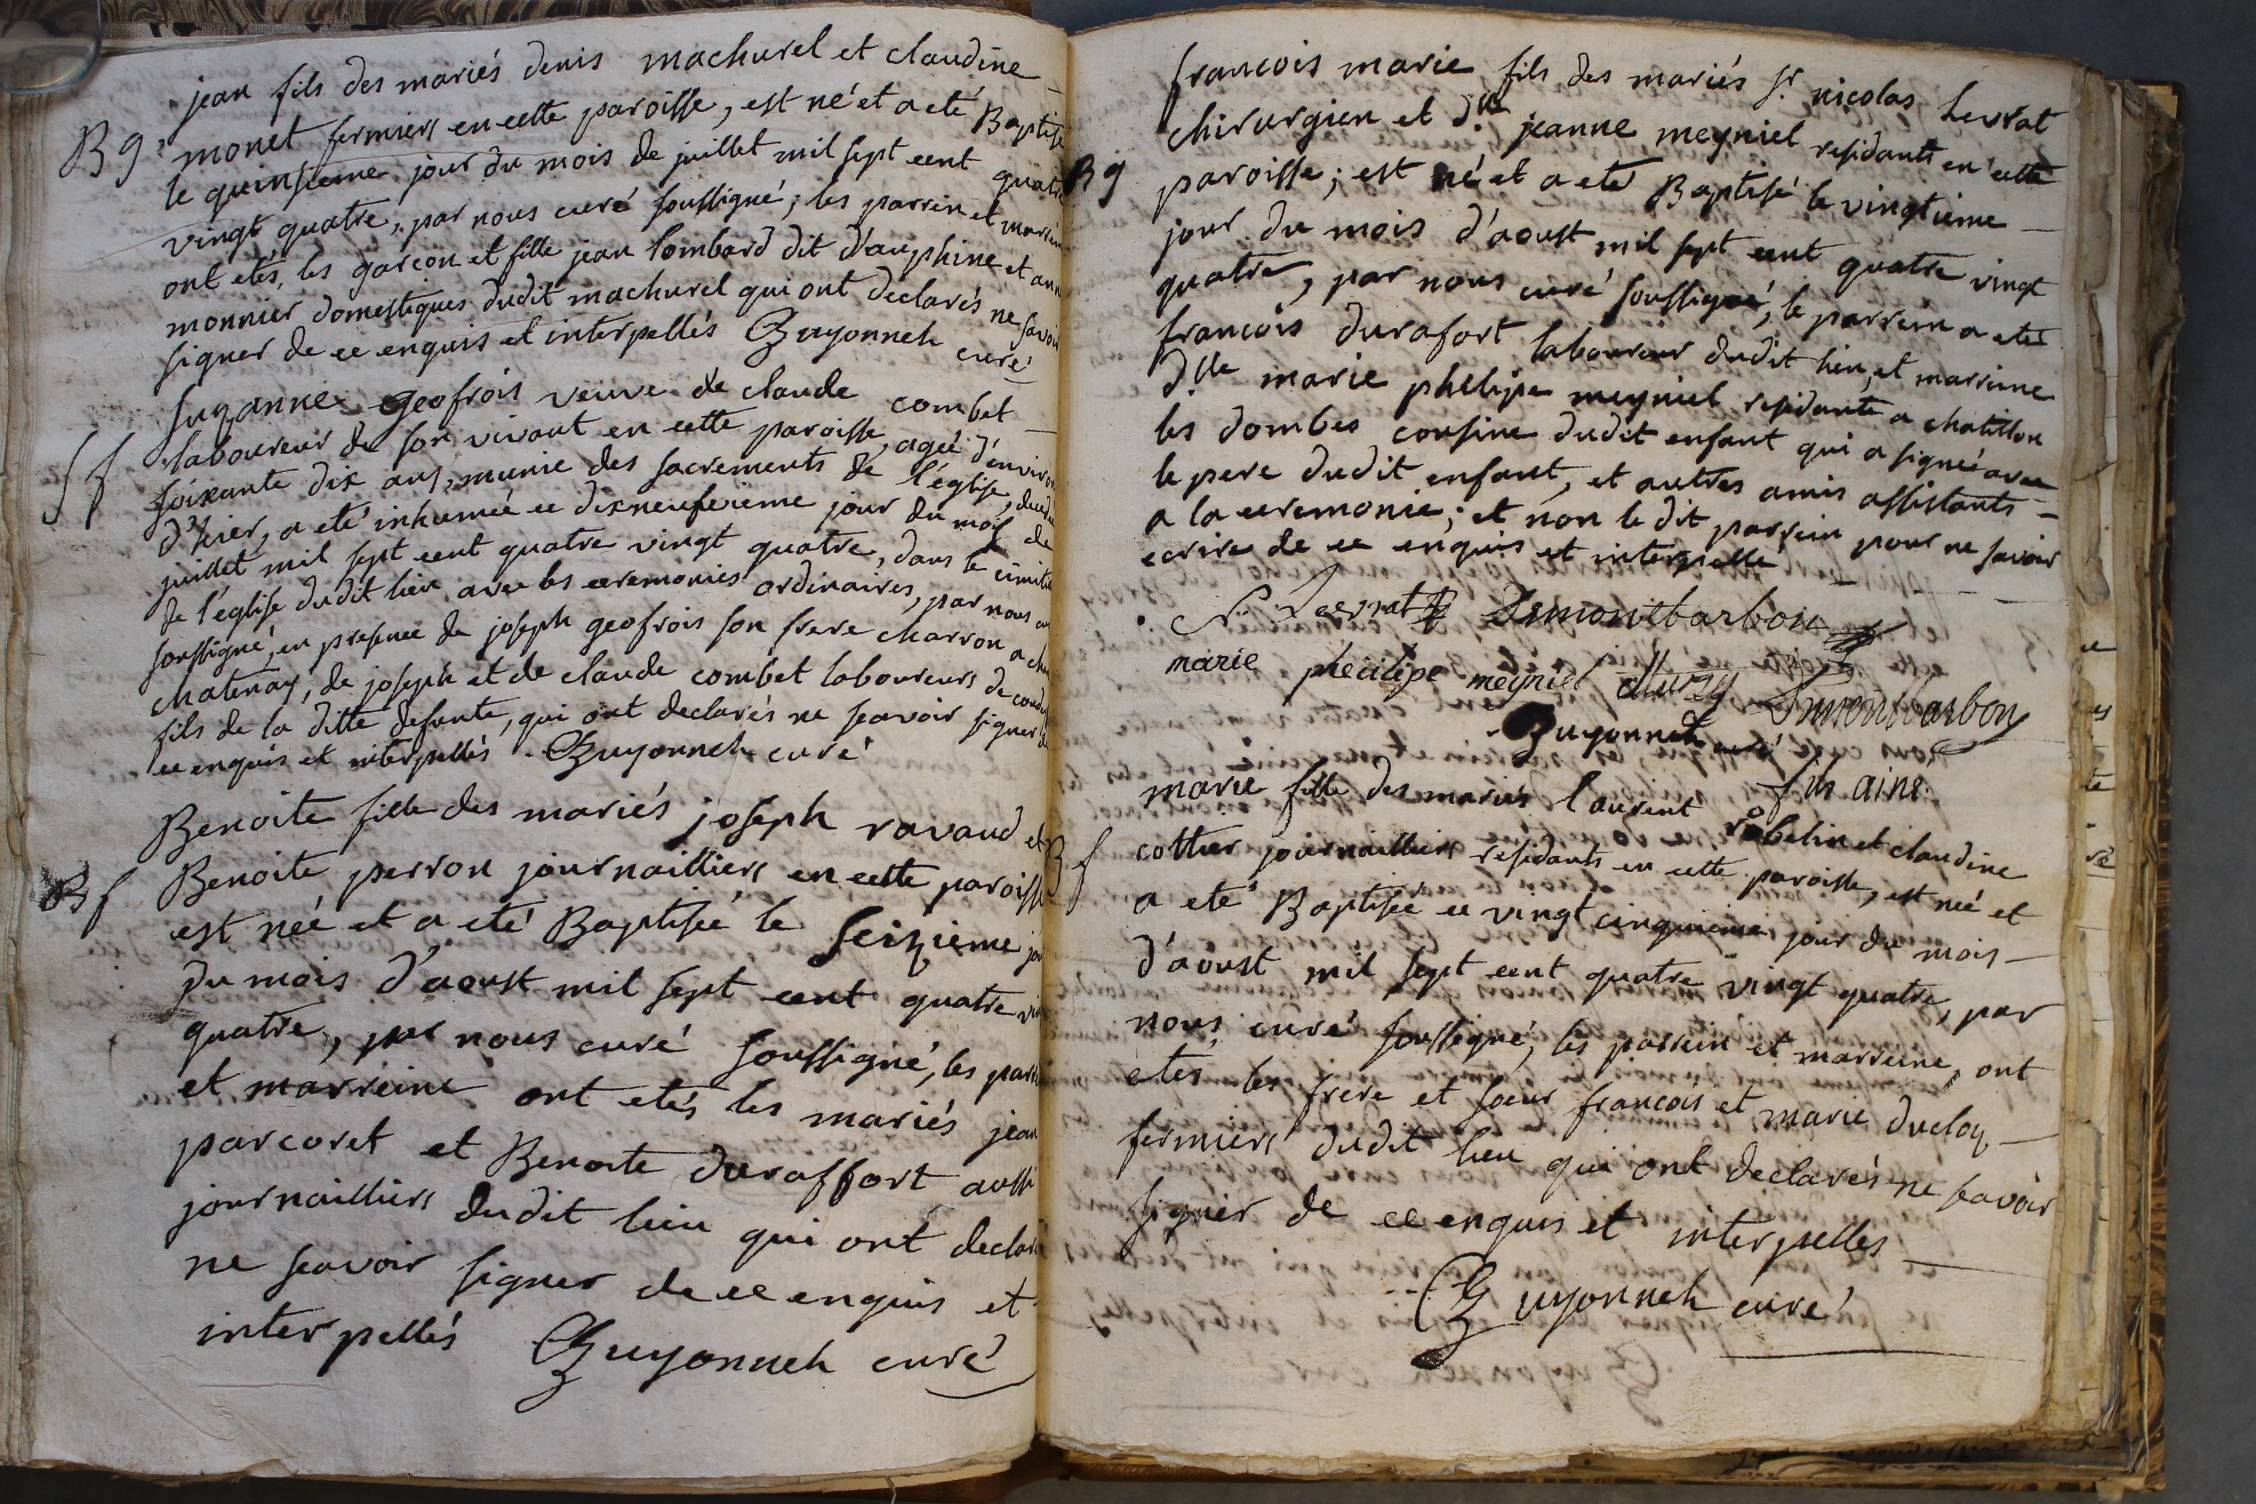 jean fils des mariés denis machurel et claudine
B g monet fermiers en cette paroisse, est né et a eté Baptisé
le quinsieme jour du mois de juillet mil sept cent quatre
vingt quatre, par nous curé soussigné; les parrin et marrein
ont etés, les garcon et fille jean lombard dit d'auphine et ann
monnier domestiques dudit machurel qui ont declarés ne savoir
signer de ce enquis et interpellés Guyonneh curé
Suzanne geofrois veuve de claude combet
S f laboureur de son vivant en cette paroisse, agée d'environ
soixante dix ans, munie des sacrements de l'église,
d'hier, a eté inhumée ce dixneufvieme jour du mois de
juillet mil sept cent quatre vingt quatre, dans le cimetie
de l'église dudit lieu avec les ceremonies ordinaires, par nous cu
soussigné, en presence de joseph geofrois son frere charron a
chatenay, de joseph et de claude combet laboureurs de
fils de la ditte defunte, qui ont declarés ne scavoir signer de
ce enquis et interpellés. Guyonneh curé
Benoite fille des mariés joseph ravaud et
B f Benoite perron journailliers en cette paroisse
est née et a eté Baptisée le seizieme jou
du mois d'aoust mil sept cent quatre vin
quatre, par nous curé soussigné, les parr
et marreine ont etés les mariés jean
parcoret et Benoite duraffort aussi
journailliers dudit lieu qui ont declarés
ne scavoir signer de ce enquis et
interpellés Guyonneh curé
francois marie fils des mariés sr nicolas Levrat
chirurgien et dlle jeanne meyniel residants en cette
B g paroisse; est né et a eté Baptisé le vingtieme
jour du mois d'aoust mil sept cent quatre vingt
quatre, par nous curé soussigné, le parrein a eté
francois durafort laboureur dudit lieu, et marreine
dlle marie phelipe meyniel residante a chatillon
les dombes cousine dudit enfant qui a signée avec
le pere dudit enfant, et autres amis assistants
a la ceremonie; et non le dit parrein pour ne scavoir
ecrire de ce enquis et interpellé
N. Levrat Dmontbarbon
marie pheilipe meyniel Dmontbarbon
Guyonneh curé fils ainé
marie fille des mariés laurent robelin et claudine
B f cottier journailliers residants en cette paroisse, est née et
a eté Baptisée ce vingt cinquieme jour du mois
d'aoust mil sept cent quatre vingt quatre, par
nous curé soussigné, les parrein et marreine, ont
etés les frere et soeur francois et marie ducloy
fermiers dudit lieu qui ont declarés ne scavoir
signer de ce enquis et interpellés
Guyonneh curé